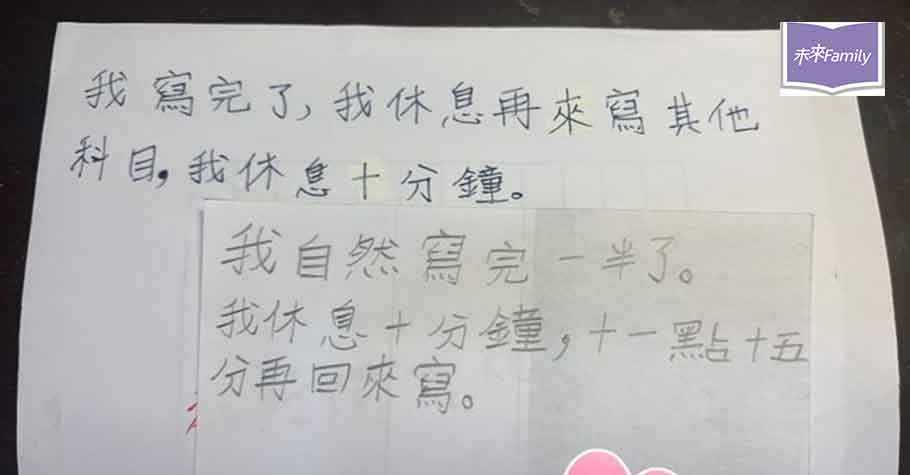 未來Family
我寫完了,我休息再來寫其他
科目,我休息十分鐘。
我自然寫完一半了。
我休息十分鐘,十一點十五
分再回來寫。